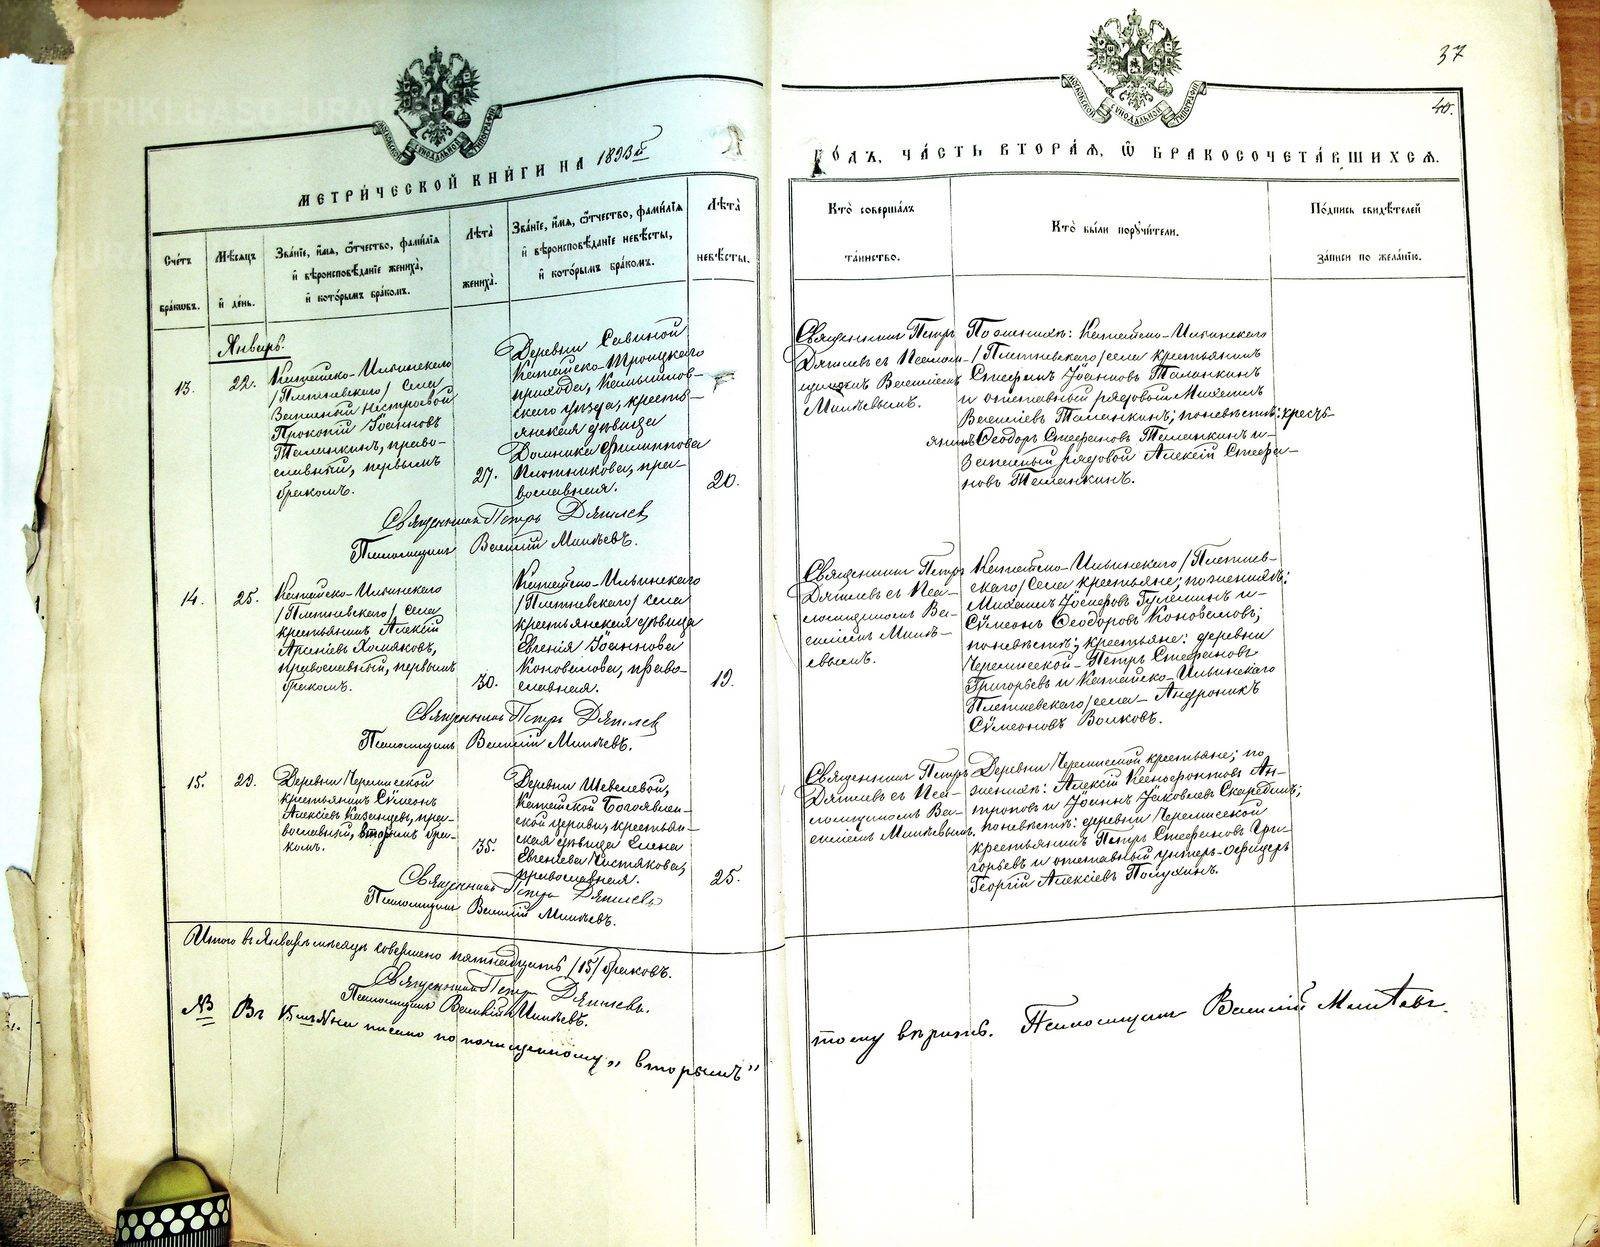 37
40.
МОСКОВСКОЙ СѴНОДАЛЬНОЙ ТИПОГРАФІИ
МОСКОВСКОЙ СѴНОДАЛЬНОЙ ТИПОГРАФІИ
МЕТРИ́ЧЕСКОЙ КНИ́ГИ НА 1893й
ГО́ДЪ, ЧА́СТЬ ВТОРА́Я, Ѿ БРАКОСОЧЕТА́ВШИХСЯ.
Сче́тъ бра́кѡвъ.
Мѣ́сяцъ и҆ де́нь.
Зва́нїе, и҆́мя, ѻ҆́тчество, фами́лїя
и҆ вѣроисповѣ́данїе жениха̀,
и҆ кото́рымъ бра́комъ.
Лѣта̀ жениха̀.
Зва́нїе, и҆́мя, ѻ҆́тчество, фами́лїя
и҆ вѣроисповѣ́данїе невѣ́сты,
и҆ кото́рымъ бра́комъ.
Лѣта̀ невѣ́сты.
Кто̀ соверша́лъ та́инство.
Кто̀ бы́ли порꙋчи́тели.
По́дпись свидѣ́телей за́писи по жела́нїю.
Январь.
13.
22.
Катайско-Ильинскаго
/Плетневскаго/ села
Запасный нестроевой
Прокопій Іоанновъ
Таланкинъ, право-
славный, первымъ
бракомъ.
27.
Деревни Савиной
Катайско-Троицкаго
прихода, Камышлов-
скаго уѣзда, кресть-
янская дѣвица
Домника Филиппова
Плотникова, пра-
вославная.
20.
Священникъ Петръ
Дягилевъ съ Псалом-
щикомъ Василіемъ
Михѣевымъ.
По женихѣ: Катайско-Ильинскаго
/Плетневскаго/ села крестьянинъ
Стефанъ Іоанновъ Таланкинъ
и отставный рядовой Михаилъ
Василіевъ Таланкинъ; по невѣстѣ: кресть-
янинъ Ѳеодоръ Стефановъ Таланкинъ и
запасный рядовой Алексій Стефа-
новъ Таланкинъ.
Священникъ Петръ Дягилевъ
Псаломщикъ Василій Михѣевъ.
14.
25.
Катайско-Ильинскаго
/Плетневскаго/ села
крестьянинъ Алексій
Арсеніевъ Хомяковъ,
православный, первымъ
бракомъ.
30.
Катайско-Ильинскаго
/Плетневскаго/ села
крестьянская дѣвица
Евгенія Іоаннова
Коновалова, право-
славная.
19.
Священникъ Петръ
Дягилевъ съ Пса-
ломщикомъ Ва-
силіемъ Михѣ-
евымъ.
Катайско-Ильинскаго /Плетнев-
скаго/ села крестьяне; по женихѣ:
Михаилъ Іосифовъ и
Сѵмеонъ Ѳеодоровъ Коноваловъ;
по невѣстѣ; крестьяне: деревни
Черемисской Петръ Стефановъ
Григорьевъ и Катайско-Ильинскаго
Плетневскаго/ села Андроникъ
Сѵмеоновъ Волковъ.
Священникъ Петръ Дягилевъ
Псаломщикъ Василій Михѣевъ.
15.
29.
Деревни Черемисской
крестьянинъ Сѵмеонъ
Алексіевъ Казанцевъ, пра-
вославный, вторымъ бра-
комъ.
35.
Деревни Шевелевой,
Катайской Богоявлен-
ской церкви, крестьян-
ская дѣвица Елена
Евгеніева Чистякова,
православная.
25.
Священникъ Петръ
Дягилевъ съ Пса-
ломщикомъ Ва-
силіемъ Михѣевымъ.
Деревни Черемисской крестьяне; по
женихѣ: Алексій Ксенофонтовъ Ан-
троповъ и Іоаннъ Іаковлевъ;
по невѣстѣ: деревни Черемисской
крестьянинъ Петръ Стефановъ Гри-
горьевъ и отставный унтеръ-офицеръ
Георгій Алексіевъ Полухинъ.
Священникъ Петръ Дягилевъ
Псаломщикъ Василій Михѣевъ.
Итого въ Январѣ мѣсяцѣ совершено пятнадцать /15/ браковъ.
Священникъ Петръ Дягилевъ.
Псаломщикъ Василій Михѣевъ.
NB Въ 15мъ №нѣ писано по почищенному „вторымъ"
тому вѣрить. Псаломщикъ Василій Михѣевъ.